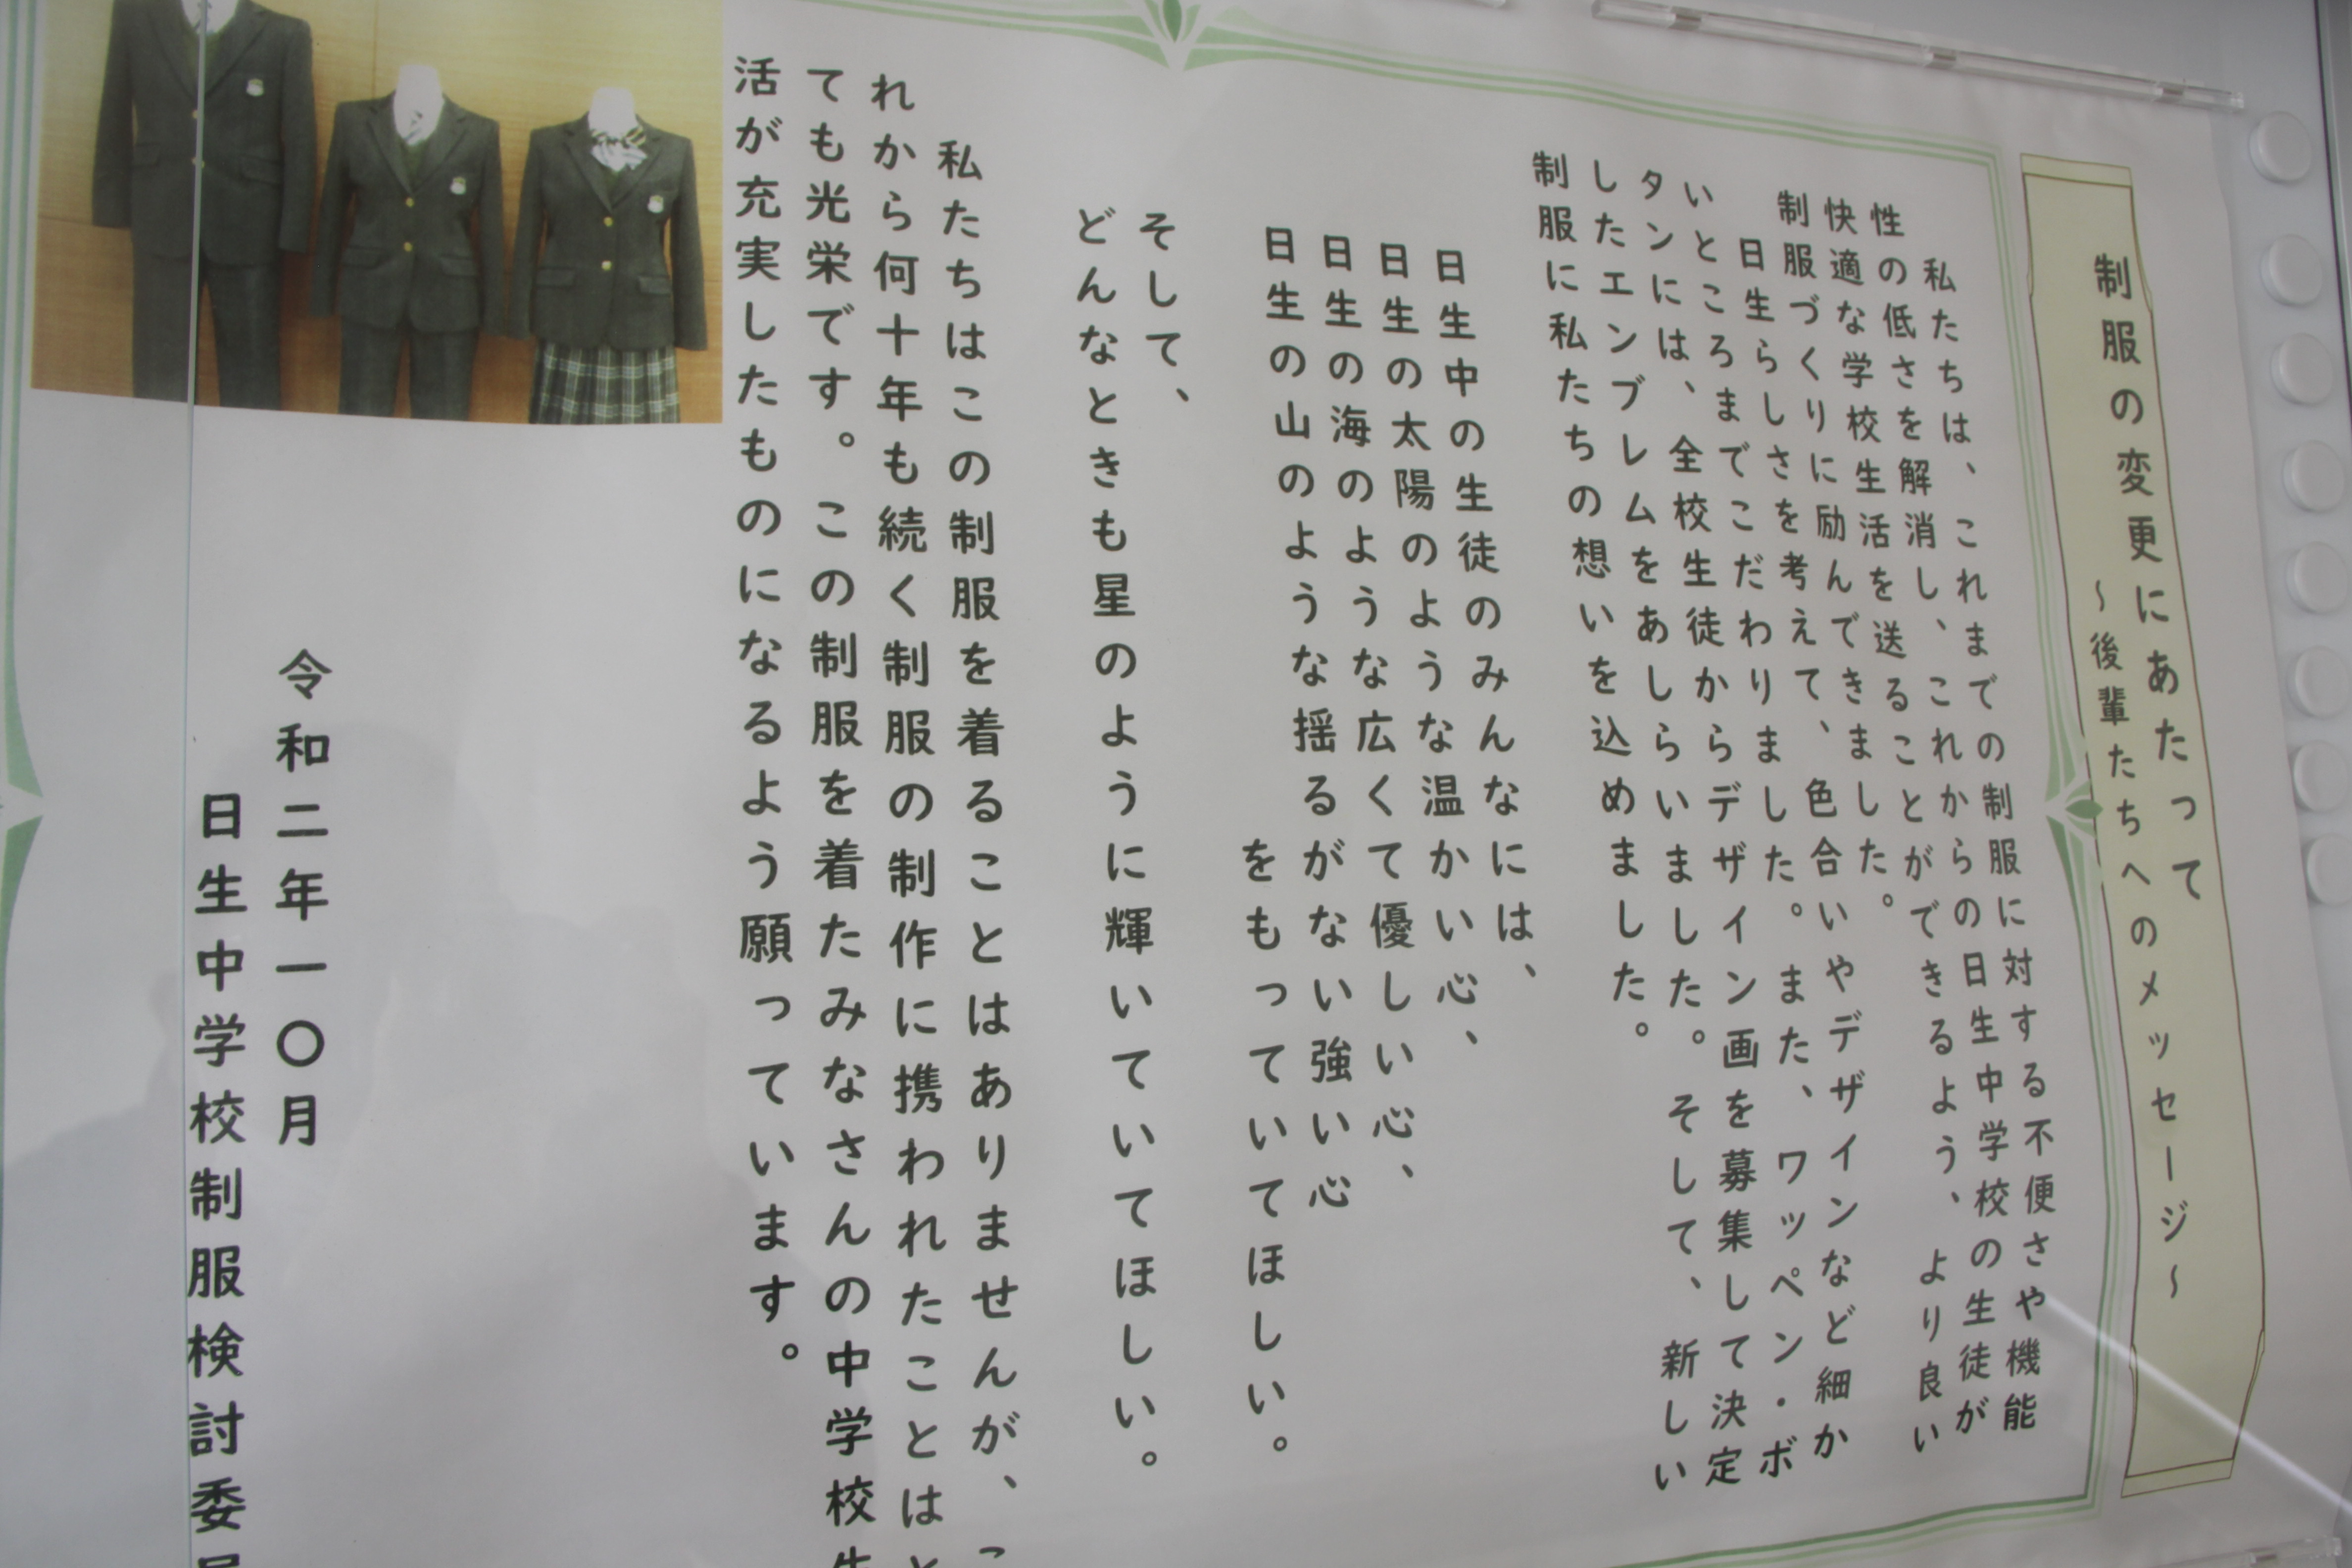 制服の変更にあたって
～後輩たちへのメッセージ～
私たちは、これまでの制服に対する不便さや機能
性の低さを解消し、これからの日生中学校の生徒が
快適な学校生活を送ることができるよう、より良い
制服づくりに励んできました。
日生らしさを考えて、色合いやデザインなど細か
いところまでこだわりました。また、ワッペン・ボ
タンには、全校生徒からデザイン画を募集して決定
したエンブレムをあしらいました。そして、新しい
制服に私たちの想いを込めました。
日生中の生徒のみんなには、
日生の太陽のような温かい心、
日生の海のような広くて優しい心、
日生の山のような揺るがない強い心
をもっていてほしい。
そして、
どんなときも星のように輝いていてほしい。
私たちはこの制服を着ることはありませんが、こ
れから何十年も続く制服の制作に携われたことはと
ても光栄です。この制服を着たみなさんの中学校生
活が充実したものになるよう願っています。
令和二年一〇月
日生中学校制服検討委員